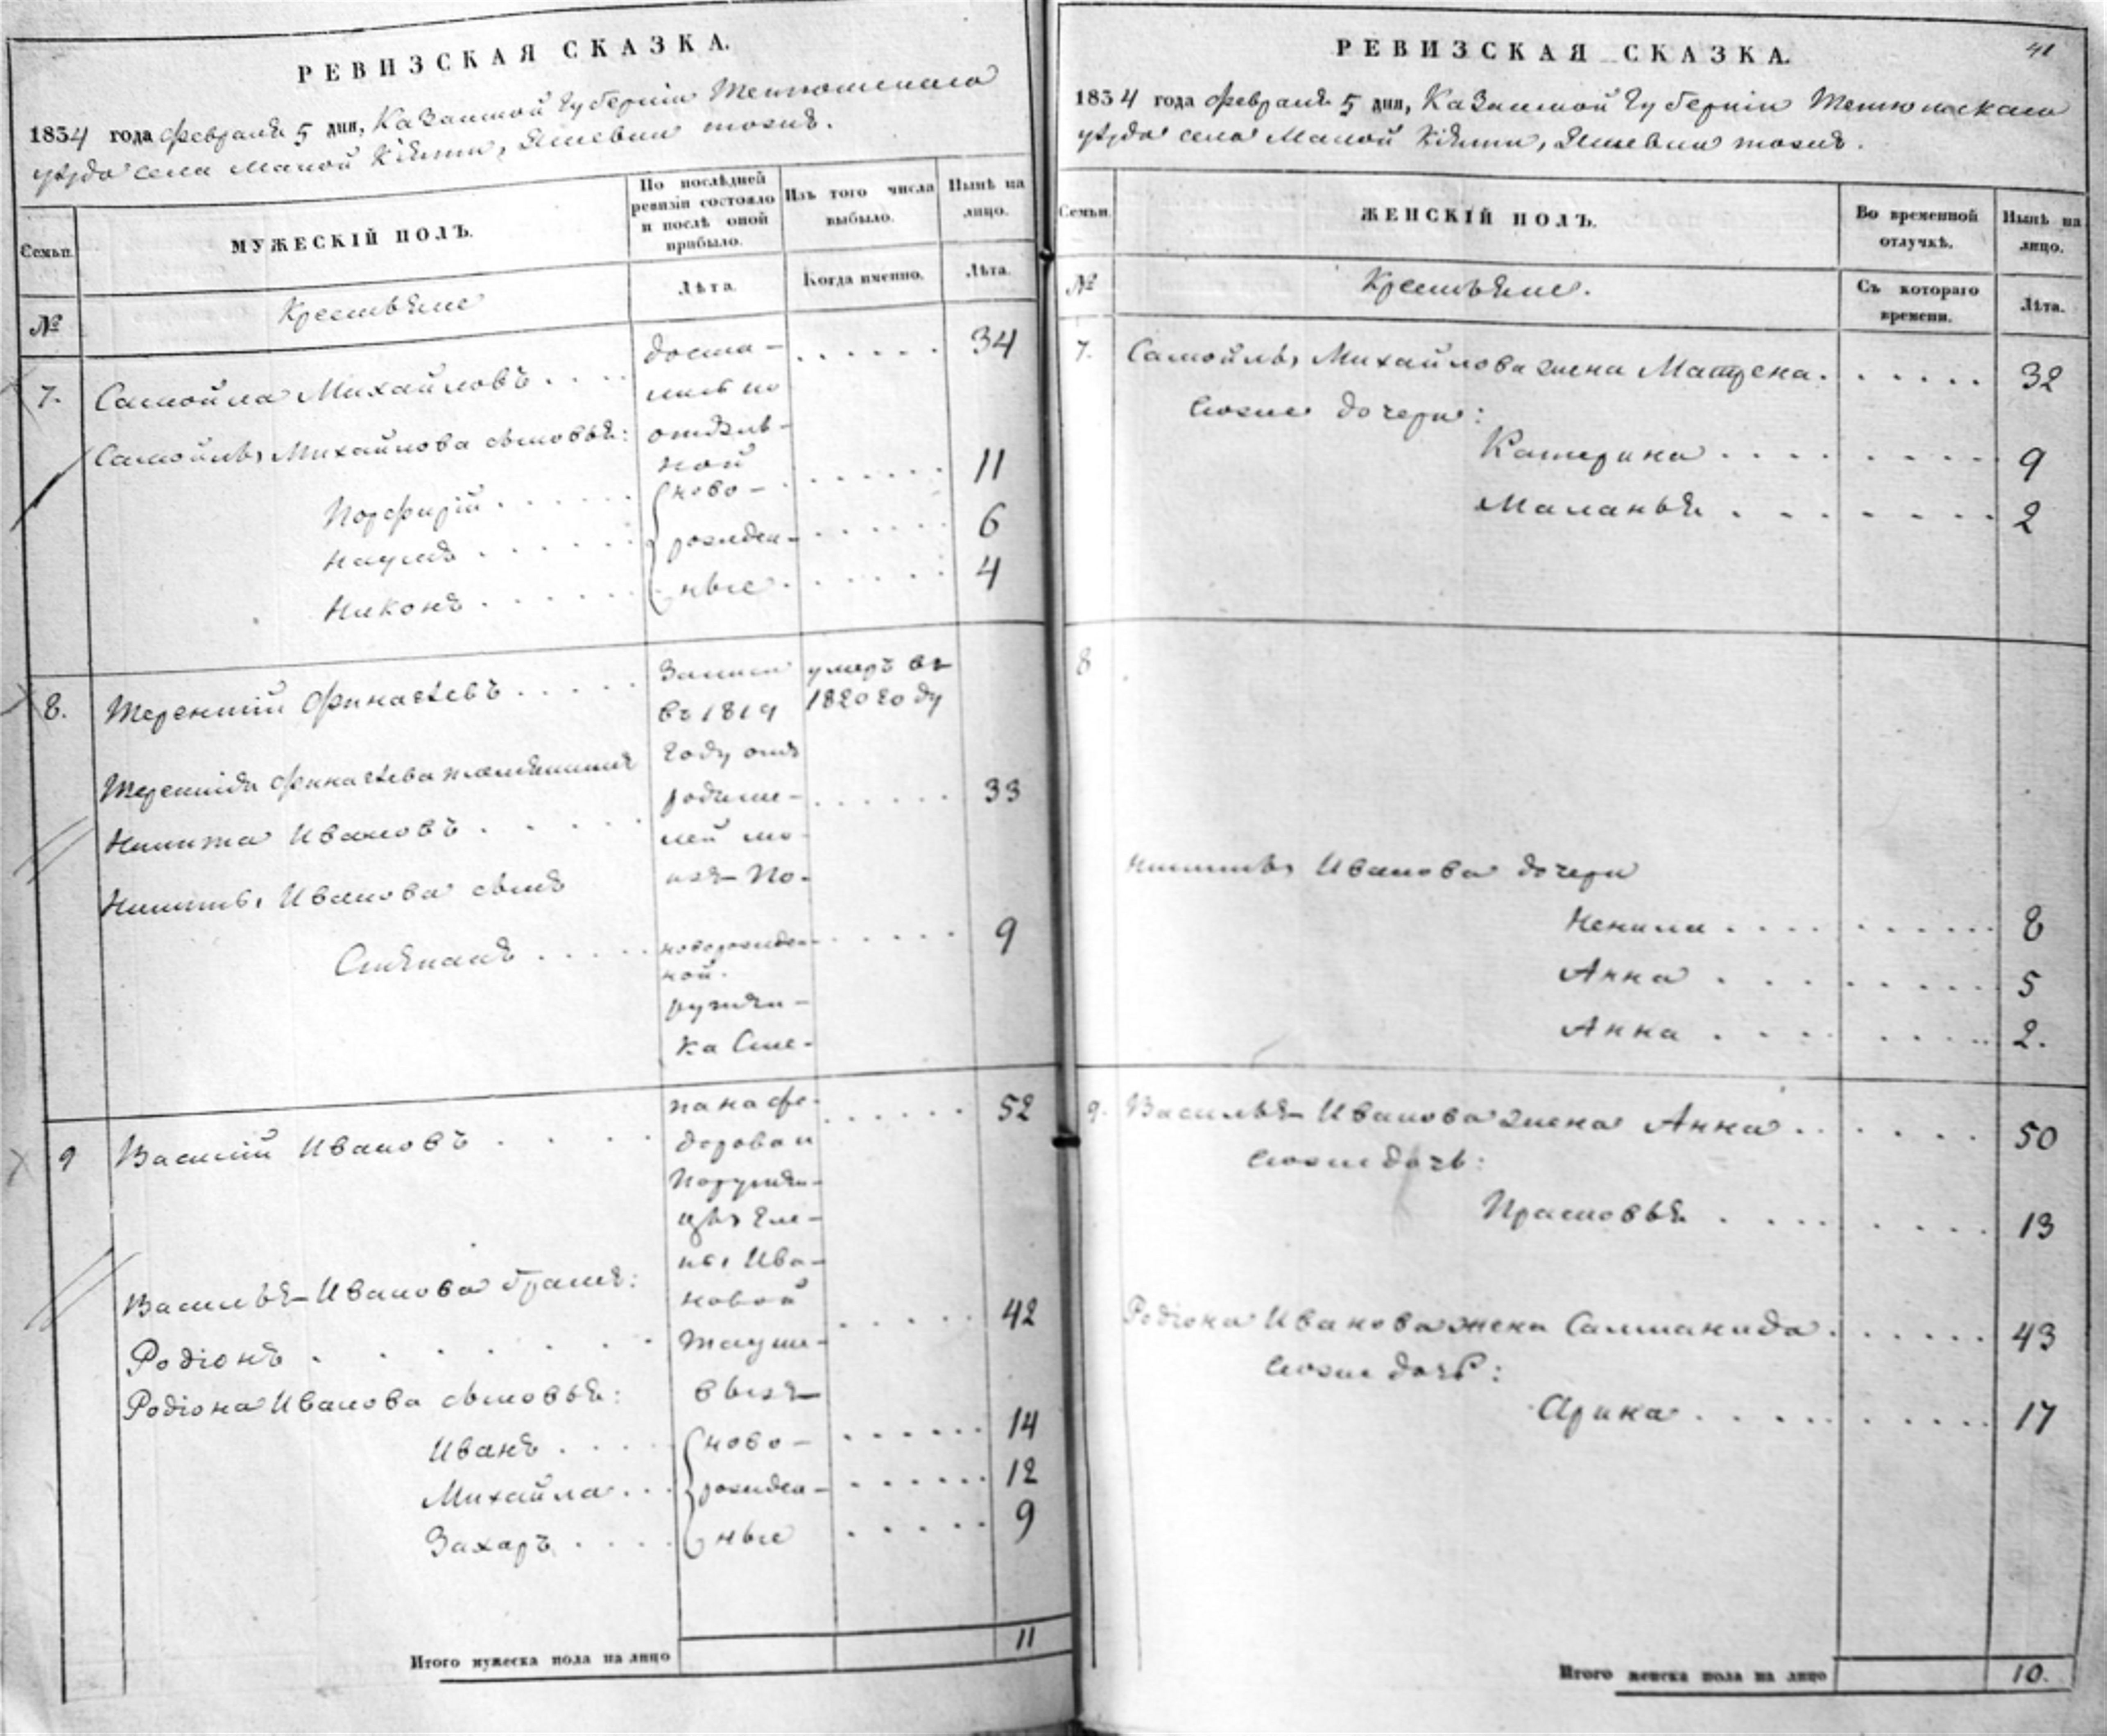 РЕВИЗСКАЯ СКАЗКА.
1834 года февраля 5 дня, Казанской Губерніи Тетюшскаго
уѣзда села Малой
Семьи. МУЖЕСКІЙ ПОЛЪ. По послѣдней ревизіи состояло и послѣ оной прибыло. Изъ того числа выбыло. Нынѣ на лицо.
№ Крестьяне Лѣта. Когда именно. Лѣта.
7. Самойла Михайловъ доста- 34
лись по
Самойлы Михайлова сыновья: отдѣль-
ной
Порфирій ново- 11
Наумъ рожден- 6
Никонъ ные 4
8. Терентій въ 1819 умеръ въ 1820 году
Терентія году отъ
Никита Ивановъ родите- 33
лей мо-
Никиты Иванова сынъ ихъ По-
Степанъ новорожден- 9
ной.
ручи-
ка Сте-
9 Василій Ивановъ пана Фе- 52
дорова и
Поручи-
цы Еле-
ны Ива-
Василья Иванова братъ: новой
Родіонъ 42
Родіона Иванова сыновья:
Иванъ ново- 14
Михайла рожден- 12
Захаръ ные 9
Итого мужеска пола на лицо 11
41
РЕВИЗСКАЯ СКАЗКА.
1834 года февраля 5 дня, Казанской Губерніи Тетюшскаго
уѣзда села Малой
Семьи. ЖЕНСКІЙ ПОЛЪ. Во временной отлучкѣ. Нынѣ на лицо.
№ Крестьяне. Съ котораго времени. Лѣта.
7. Самойлы Михайлова жена Матрена 32
дочери:
Катерина 9
Маланья 2
8
Никиты Иванова дочери
Ненила 8
Анна 5
Анна 2.
9. Васильея Иванова жена Анна 50
дочь:
Прасковья 13
Родіона Иванова жена Саломанида 43
дочь:
Арина 17
Итого женска пола на лицо 10.